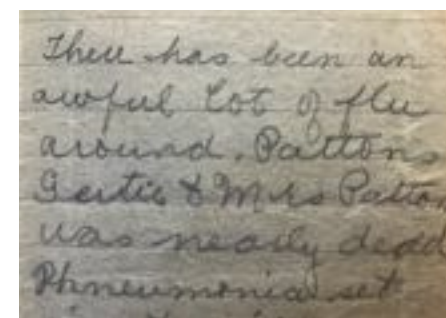 There has been an
awful lot of flu
around. Pattons
Gertie & Mrs Patton
was nearly dead
Phneumonia set